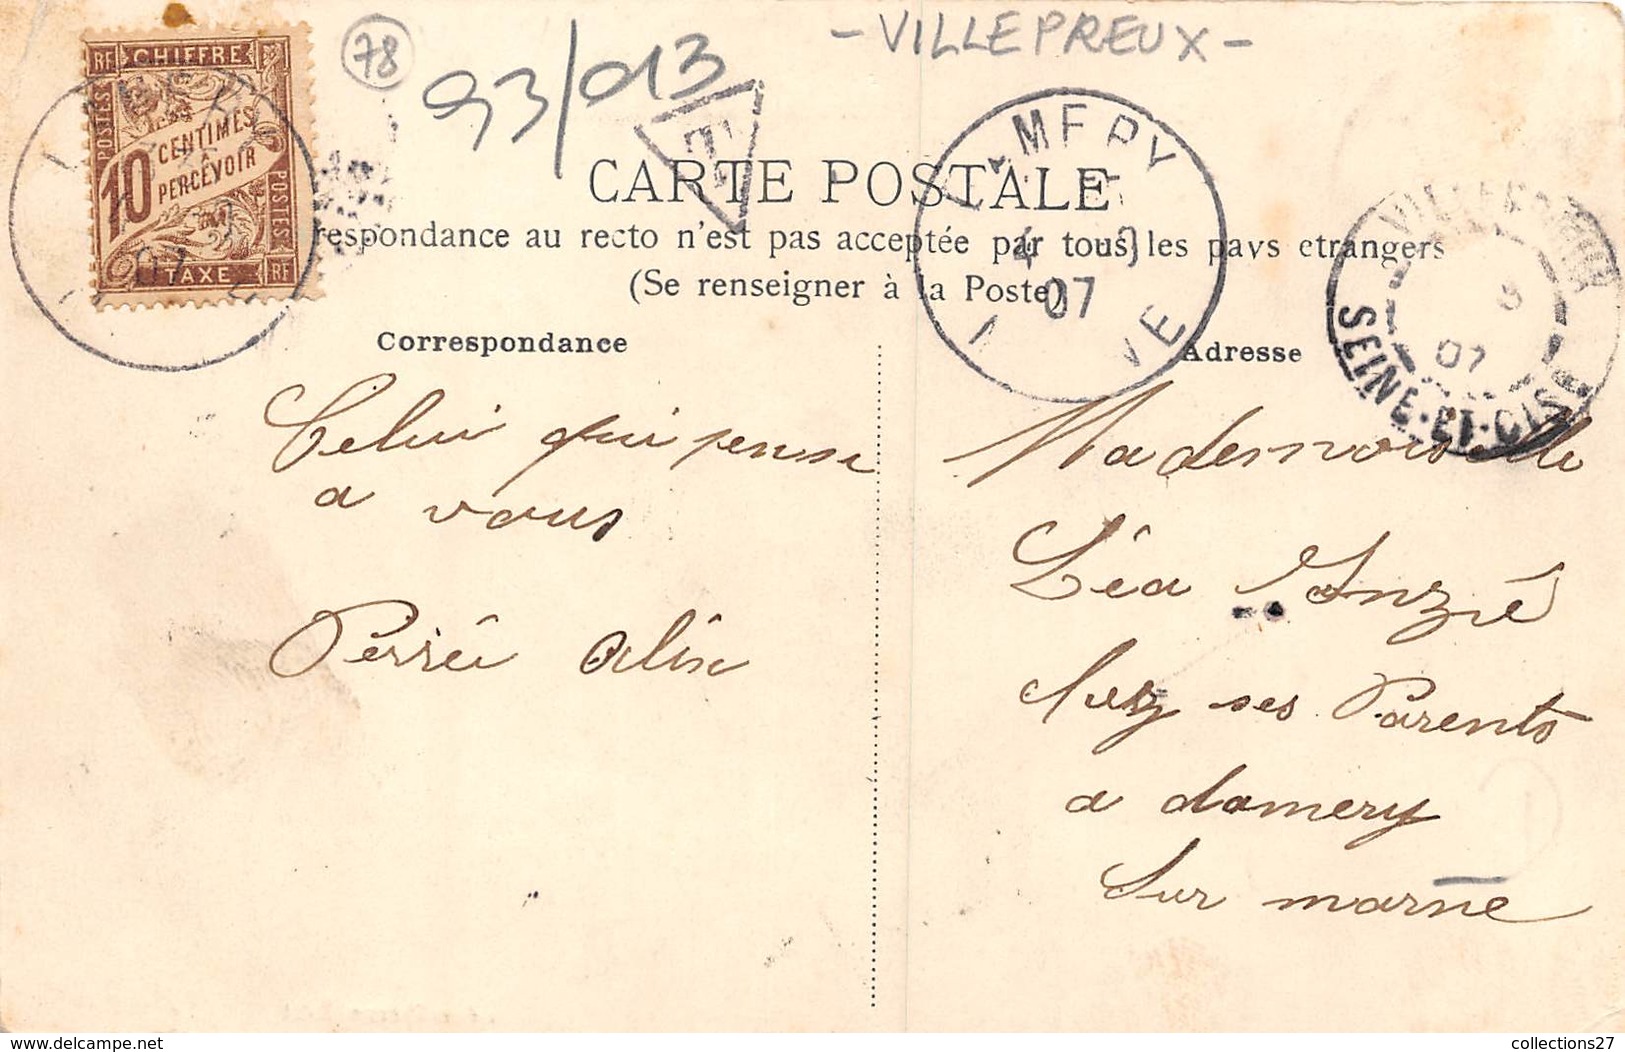 - VILLEPREUX -
78
93/013
RF CHIFFRE
POSTES
10 CENTIMES
A
PERCEVOIR
POSTES
TAXE RF
07
T
CARTE POSTALE
respondance au recto n'est pas acceptée par tous les pays etrangers
(Se renseigner à la Poste)
MERY
4
07
SEINE-ET-OISE
07
Correspondance
Adresse
Celui qui pense
a vous
Perrée Alix
Mademoiselle
Léa Inzié
chez ses Parents
a damery
Sur marne
delcampe.net
collections27